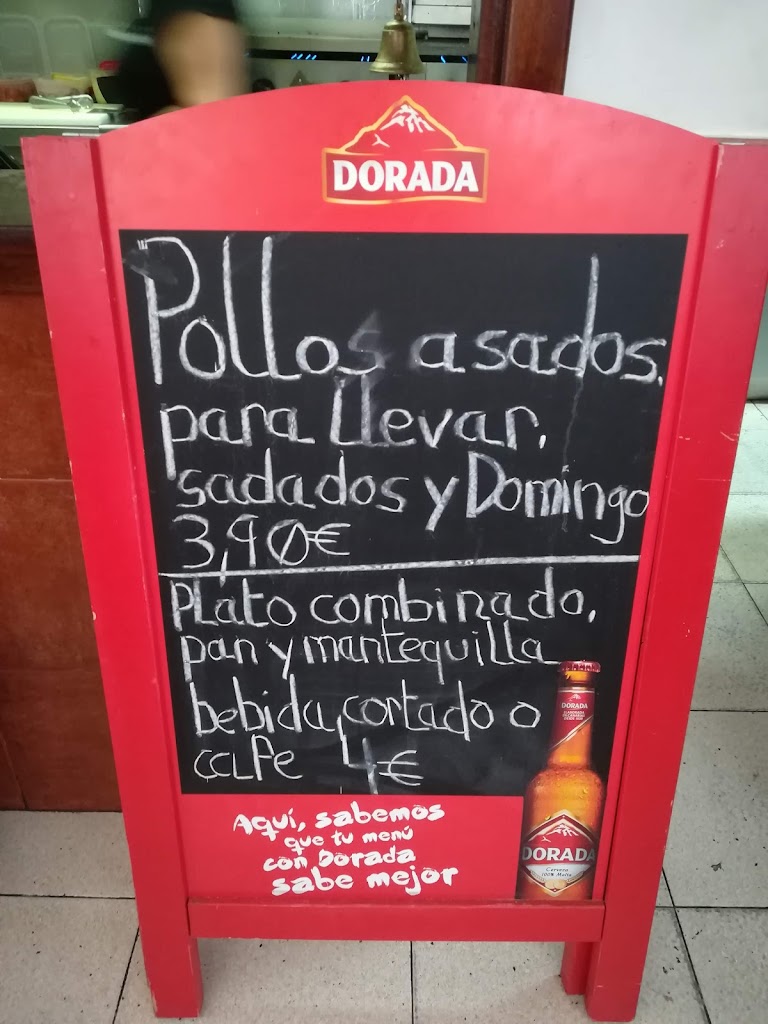 DORADA
Pollos asados.
para llevar.
sadados y Domingo
3,90€
Plato combinado.
pan y mantequilla
bebida, cortado o
cafe 4€
Aquí, sabemos
que tu menú
con Dorada
sabe mejor
DORADA
DORADA
Cerveza
100% Malta